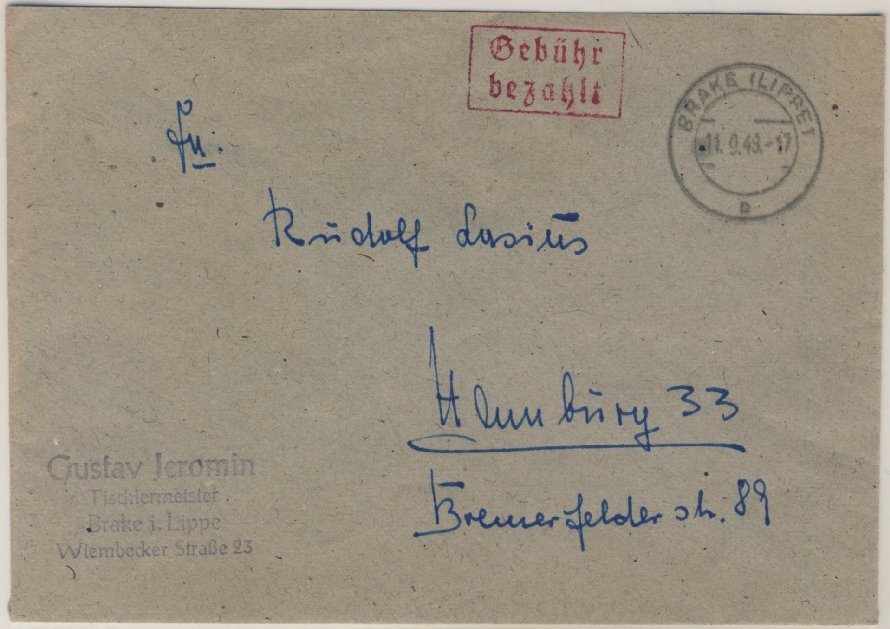 Gebühr
bezahlt
BRAKE (LIPPE)
11. 9.48.-17
b
Rudolf Lasius
Hamburg 33
str. 89
Gustav Jeromin
Tischlermeister
Brake i. Lippe
Wiembecker Straße 23